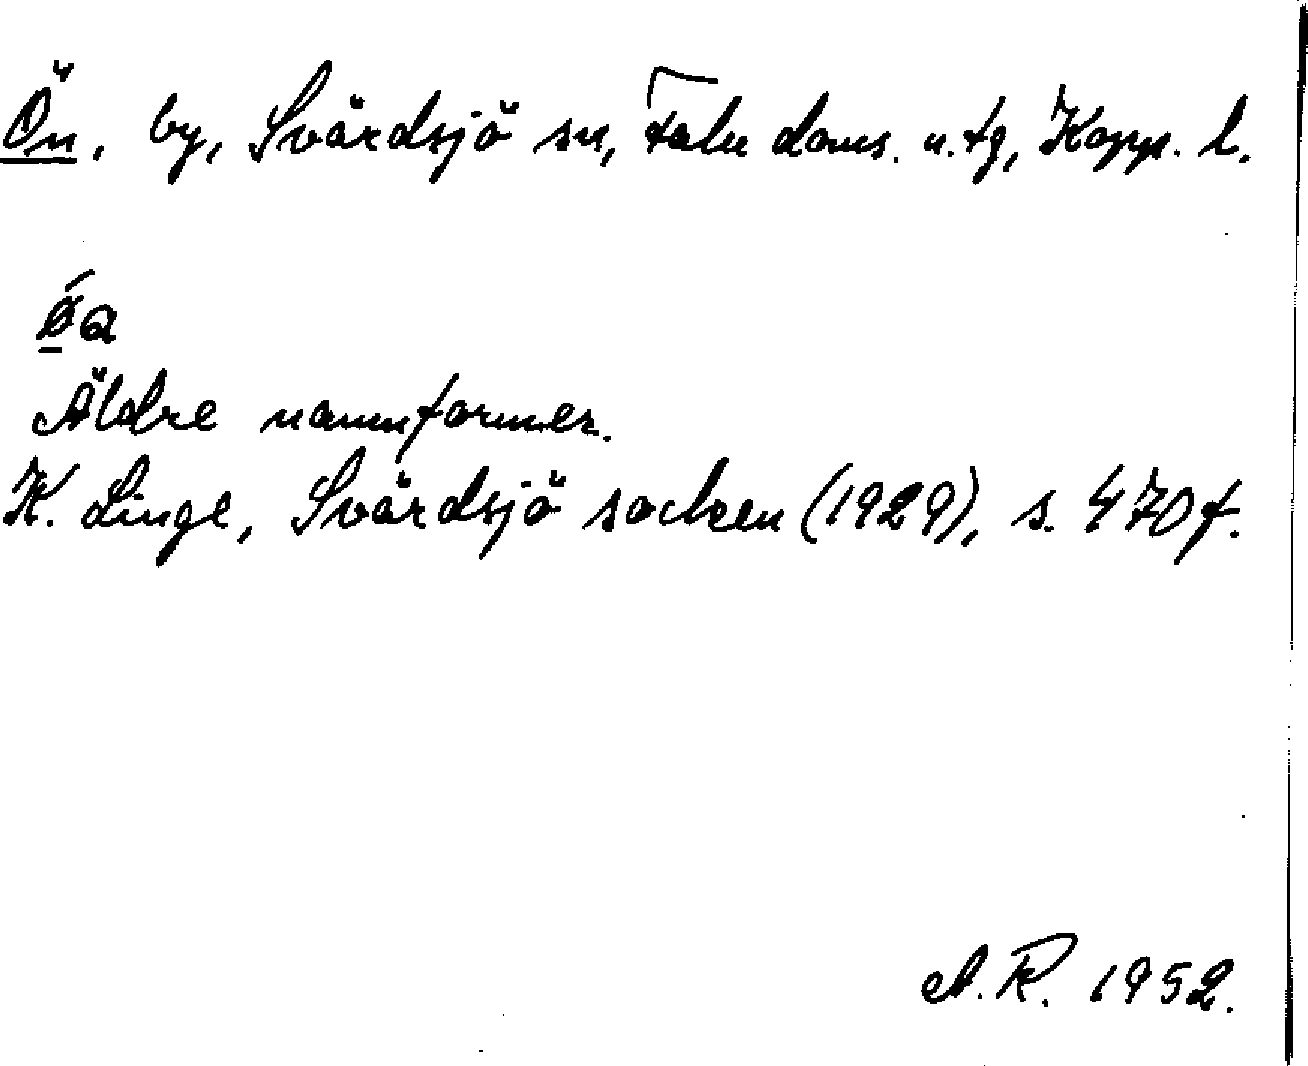 Ön, by, Svärdsjö sn, Falu doms. o. tg, Kopp. l.
Äldre namnformer.
K. Linge, Svärdsjö socken (1929), s. 470 f.
A. R. 1952.